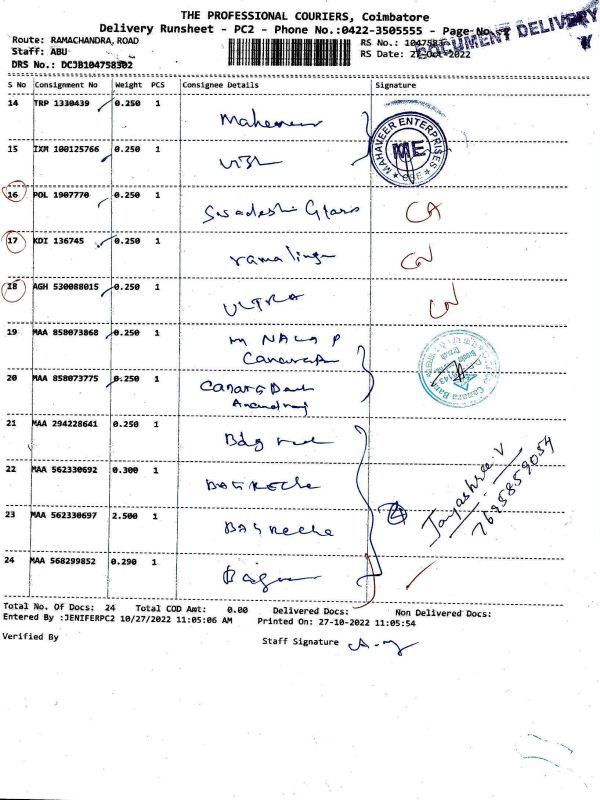 THE PROFESSIONAL COURIERS, Coimbatore
Delivery Runsheet - PC2 - Phone No.:0422-3505555 - Page No
DOCUMENT DELIVERY
Route: RAMACHANDRA,ROAD
RS No.: 1047583
Staff: ABU
RS Date: 27-Oct-2022
DRS No.: DCJB104758302
S No Consignment No Weight PCS Consignee Details Signature
14 TRP 1330439 0.250 1
MAHAVEER ENTERPRISES
ME
CBE
15 IXM 100125766 0.250 1
16 POL 1907770 0.250 1 Swadeshi Glass
17 KDI 136745 0.250 1 ramalinga
18 AGH 530088015 0.250 1 ULTRA
19 MAA 858073868 0.250 1
Canara
20 MAA 858073775 0.250 1 Canara Bank
Canara Bank
21 MAA 294228641 0.250 1
22 MAA 562330692 0.300 1
Jayashree.V
7695859054
23 MAA 562330697 2.500 1
24 MAA 568299852 0.290 1
Total No. Of Docs: 24 Total COD Amt: 0.00 Delivered Docs: Non Delivered Docs:
Entered By :JENIFERPC2 10/27/2022 11:05:06 AM Printed On: 27-10-2022 11:05:54
Verified By Staff Signature